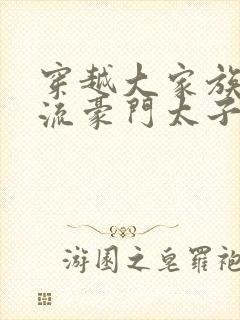 穿越大家族
流豪門太子
游園之皂羅袍